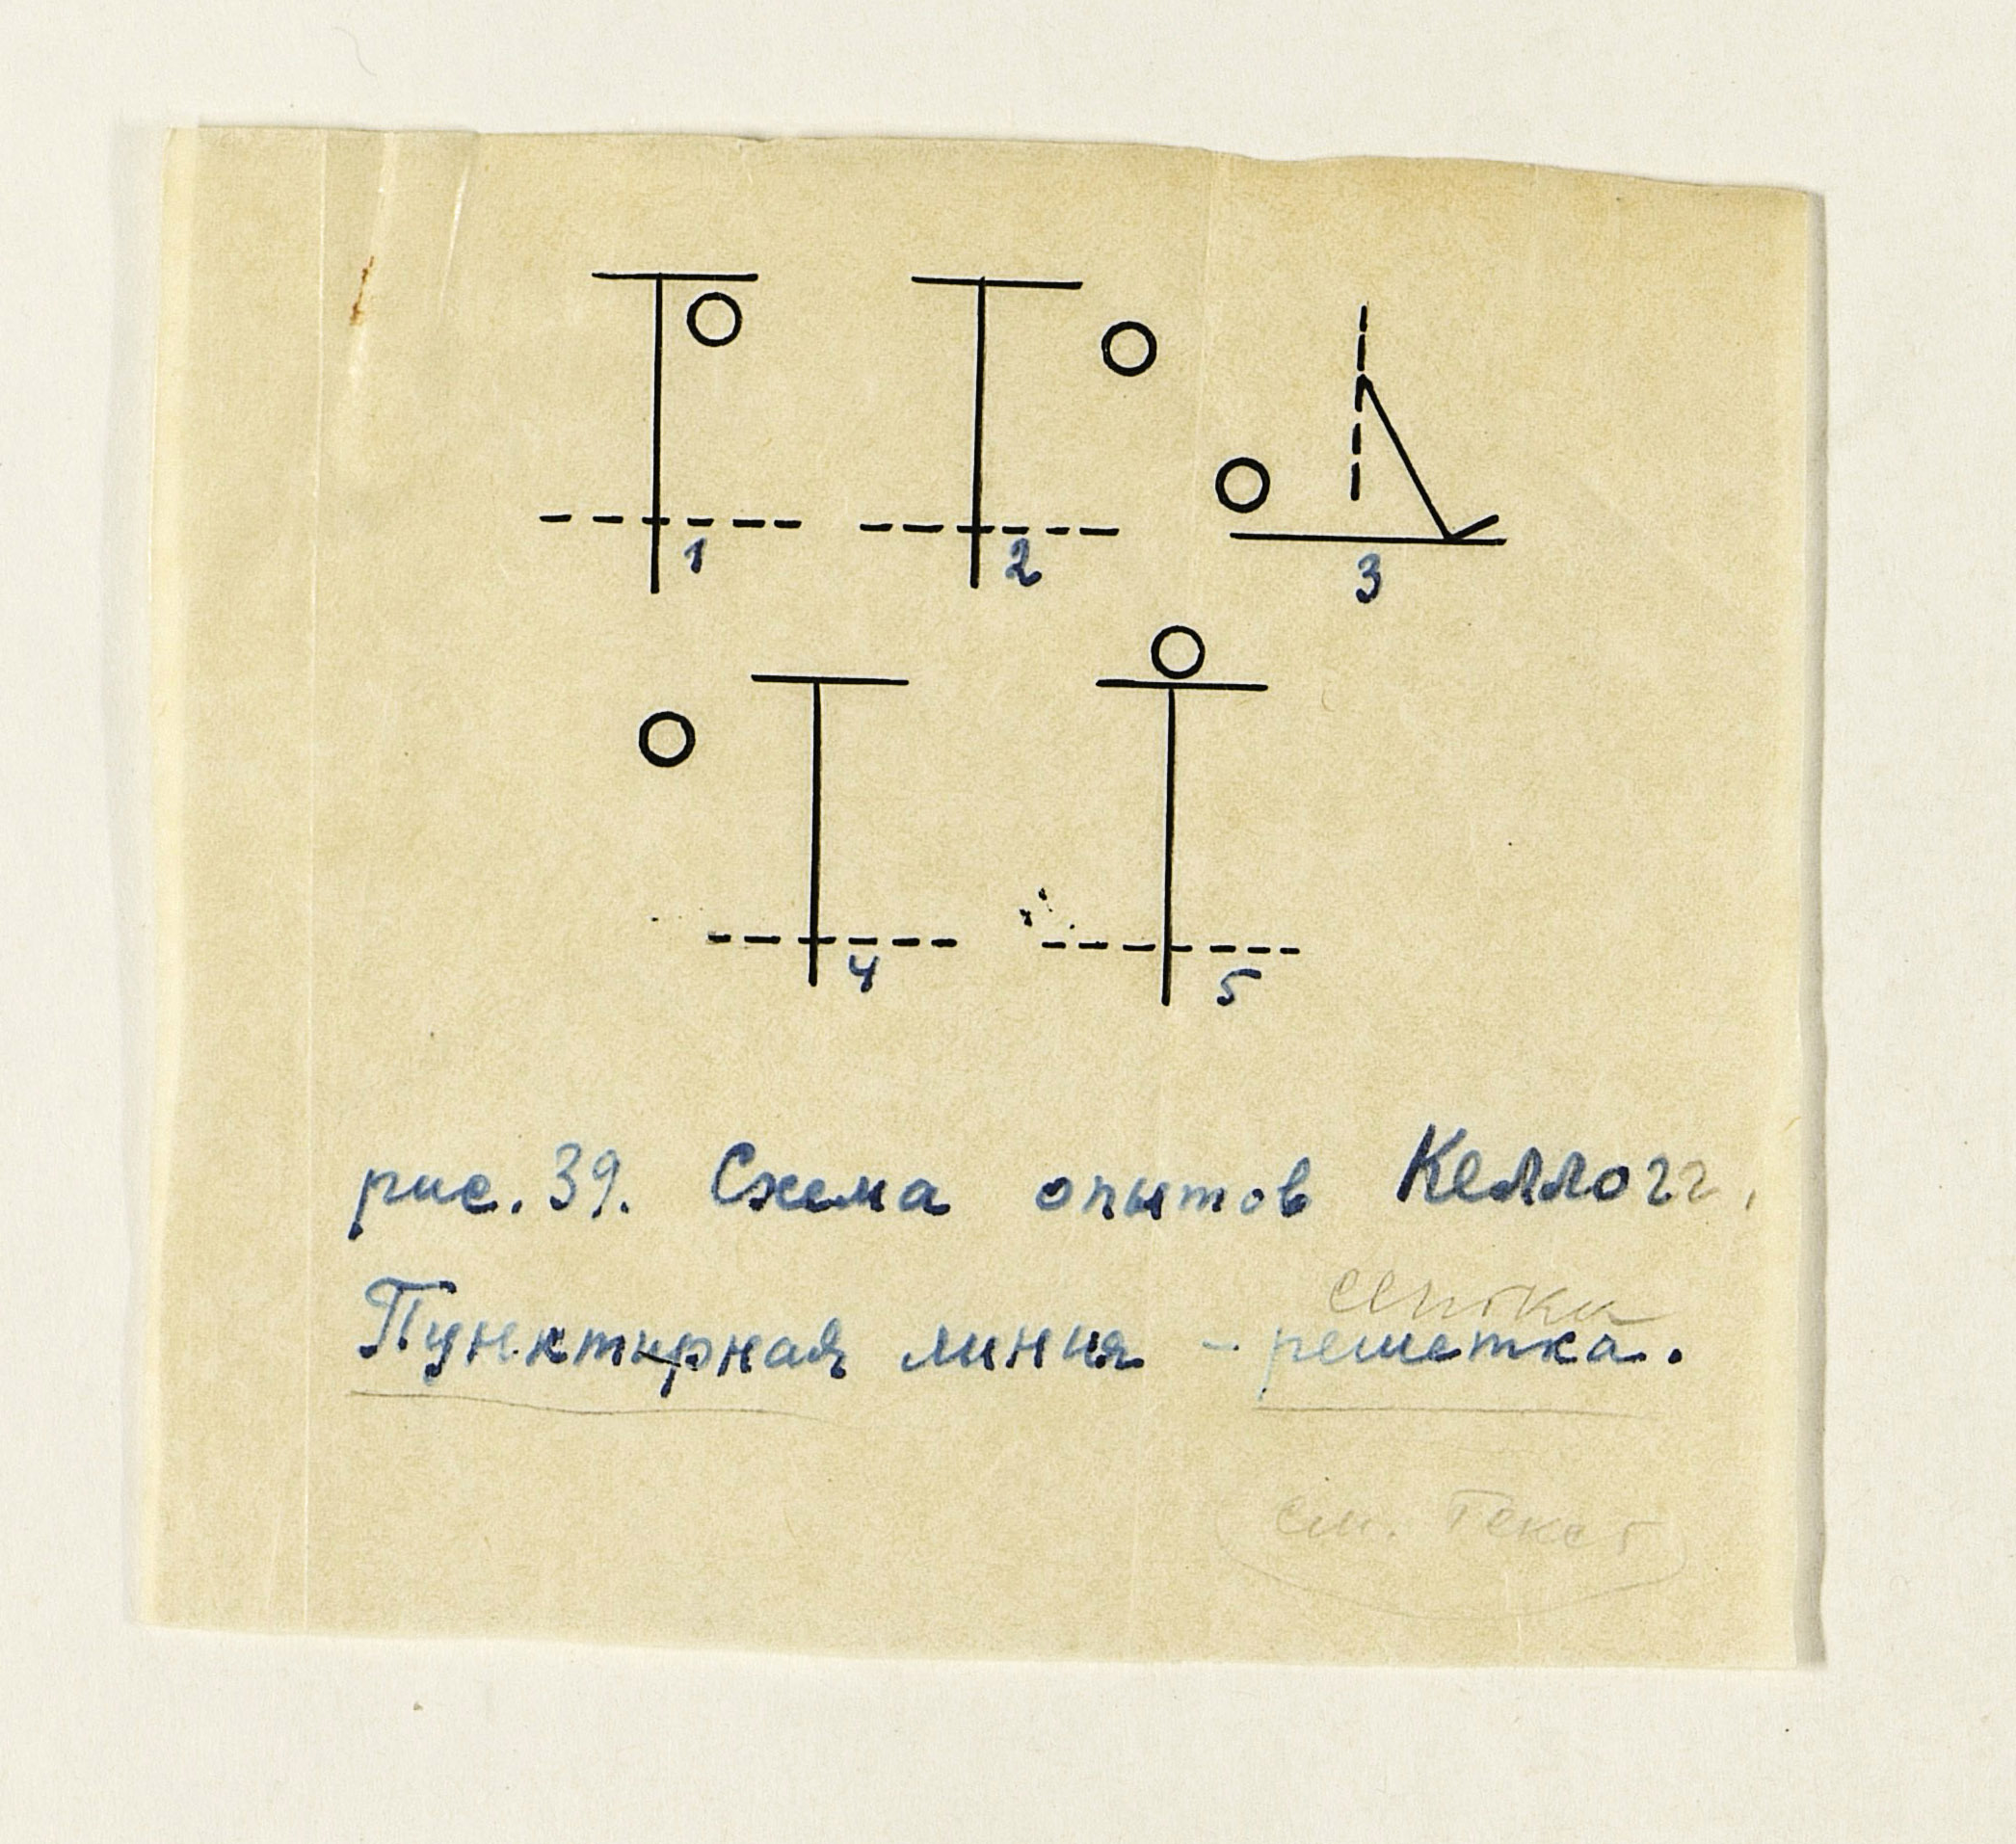 1 2 3
4 5
рис. 39. Схема опытов Келлогг.
сетка
Пунктирная линия - решетка.
см. текст